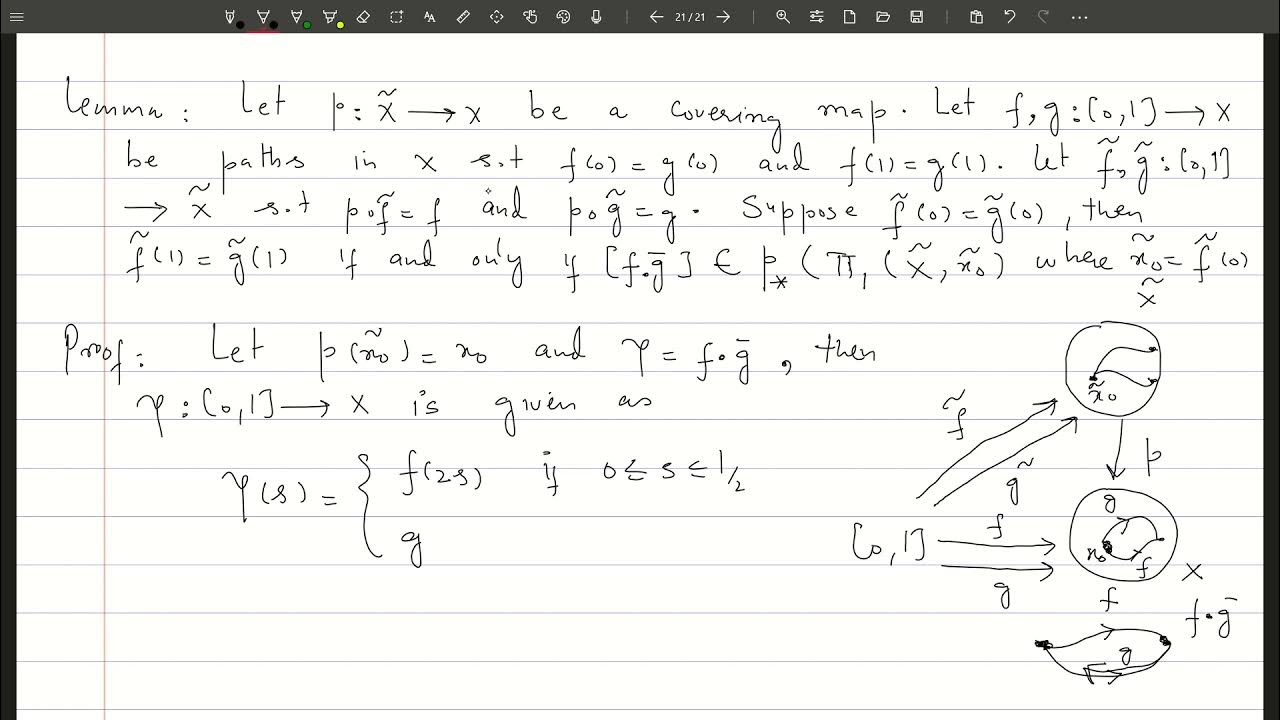 21/21
Lemma: Let p: X̃ → X be a covering map. Let f, g: [0,1] → X
be paths in X s.t f(0) = g(0) and f(1) = g(1). Let f̃, g̃: [0,1]
→ X̃ s.t p∘f̃ = f and p∘g̃ = g. Suppose f̃(0) = g̃(0), then
f̃(1) = g̃(1) if and only if [f•ḡ] ∈ p_* (π₁ (X̃, x̃₀) where x̃₀ = f̃(0)
Proof: Let p(x̃₀) = x₀ and γ = f•ḡ, then
γ: [0,1] → X is given as
γ(s) = { f(2s) if 0 ≤ s ≤ 1/2
g
X̃
x̃₀
f̃
g̃
p
[0,1]
f
g
g
x₀
f
X
f
g
f•ḡ